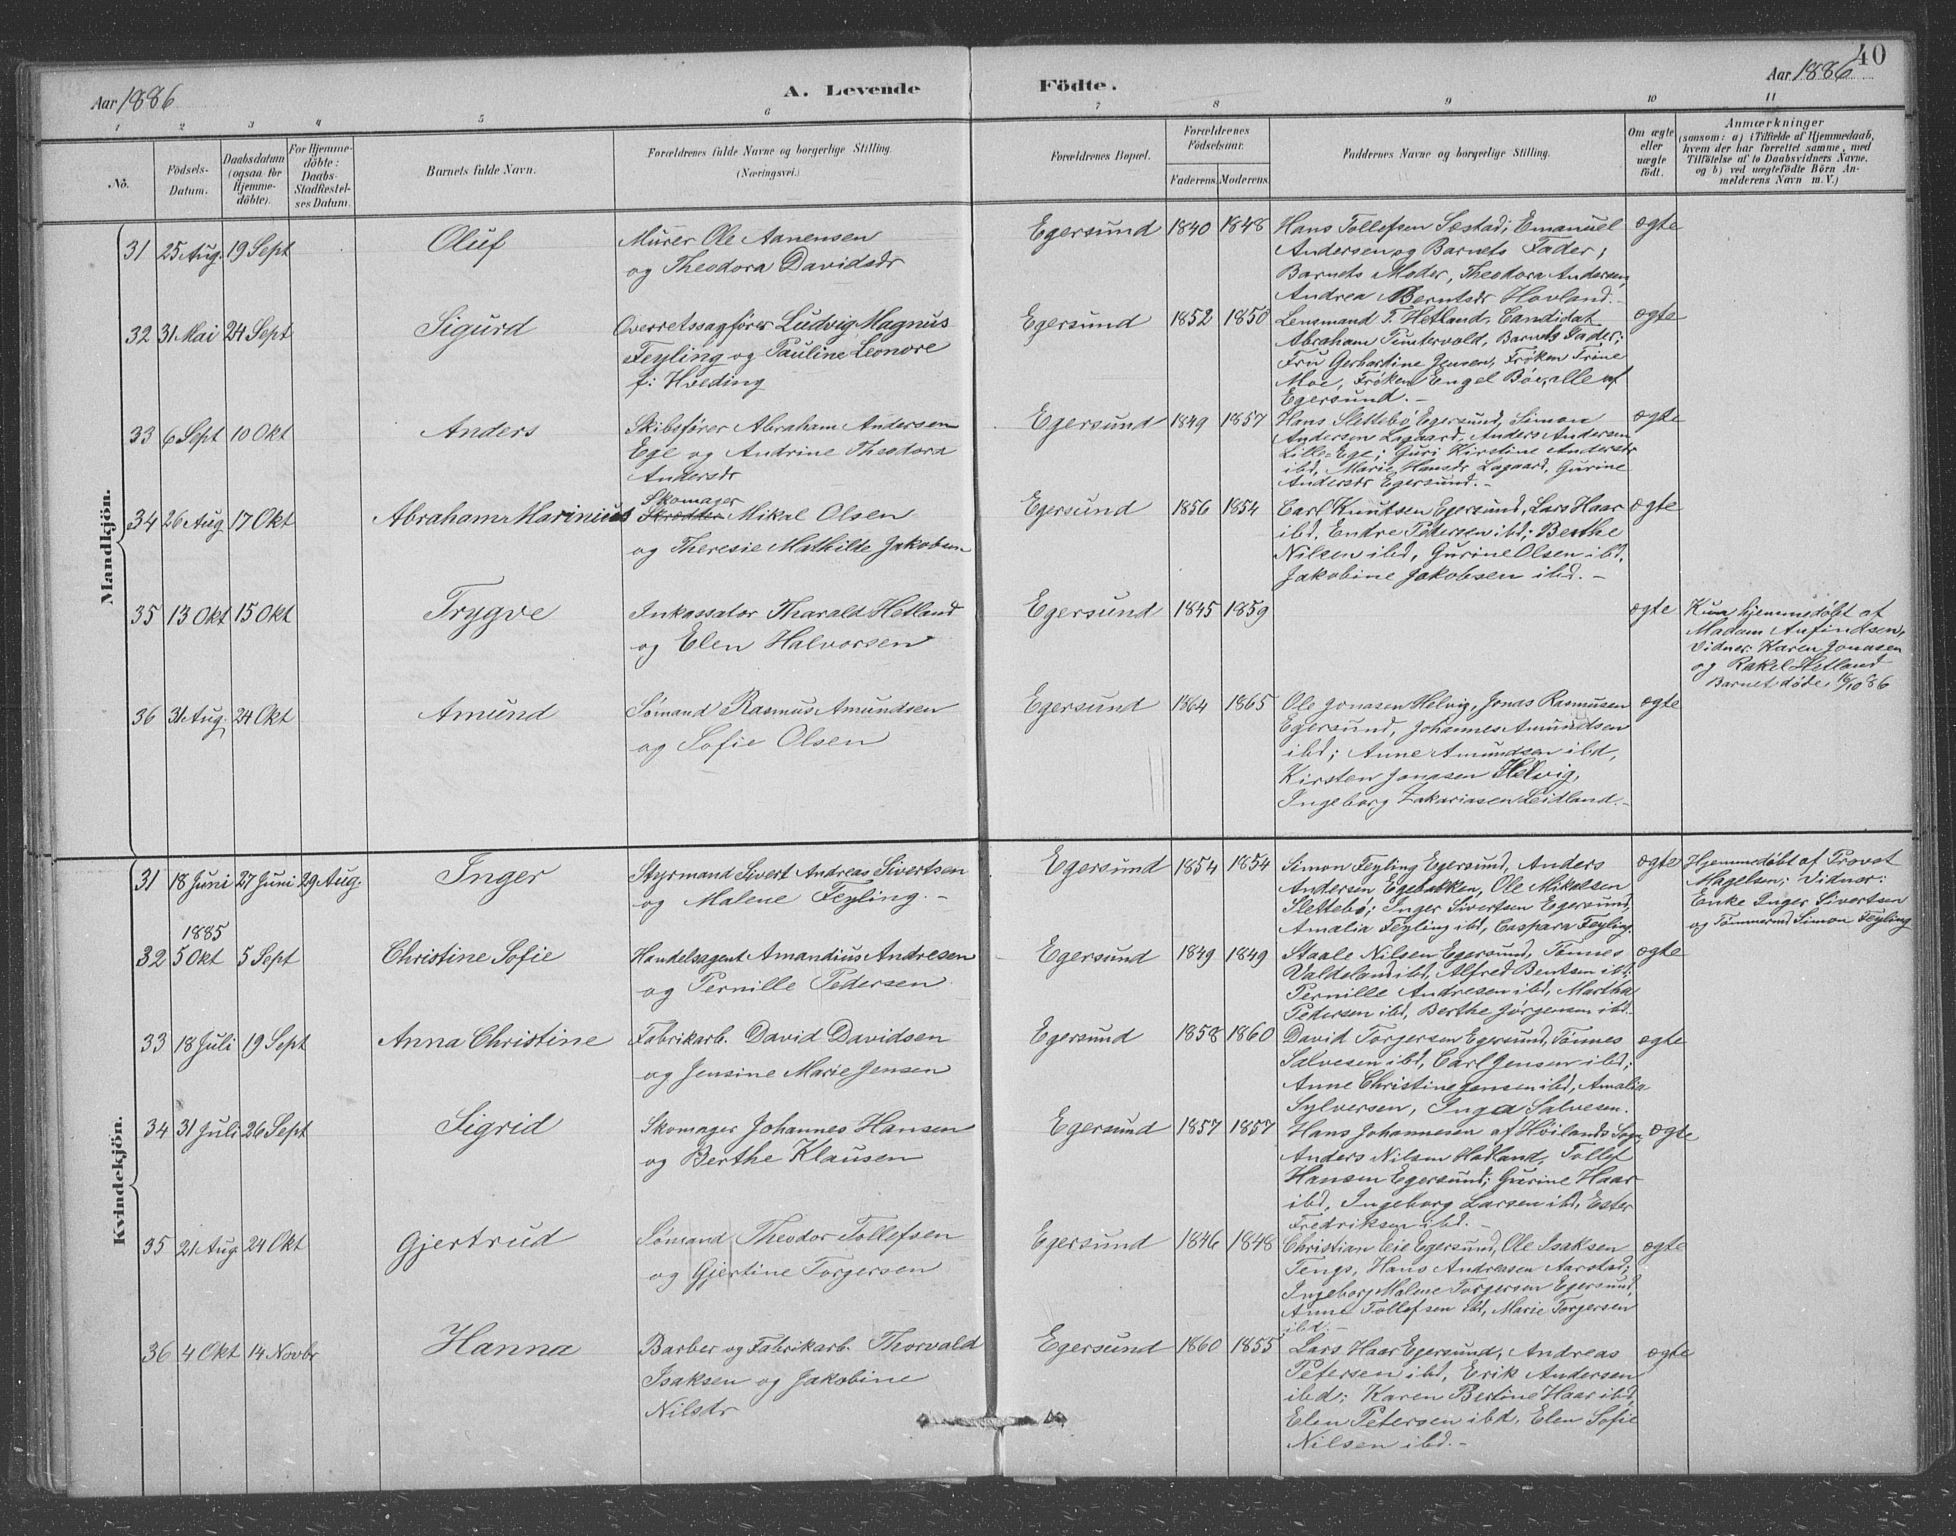 Aar 1886
A. Levende
Födte.
Aar 1886
40
1 2 3 4 5 6 7 8 9 10 11
No.
Födsels-
Datum.
Daabsdatum
(ogsaa for
Hjemme-
döbte).
For Hjemme-
döbte:
Daabs-
Stadfæstel-
ses Datum.
Barnets fulde Navn.
Forældrenes fulde Navne og borgerlige Stilling.
(Næringsvei.)
Forældrenes Bopæl.
Forældrenes
Födselsaar.
Faderens. Moderens.
Faddernes Navne og borgerlige Stilling.
Om ægte
eller
uægte
født.
Anmærkninger
(saasom: a) i Tilfælde af Hjemmedaab,
hvem der har forrettet samme, med
Tilföielse af to Daabsvidners Navne.
og b) ved uægtefödte Börn An-
melderens Navn m. V.)
Mandkjön.
31 25 Aug. 19 Sept Oluf
Murer Ole Aanensen
og Theodora Davidsdr
Egersund 1840 1848
Hans Tollefsen Sæstad; Emanuel
Andersen og Barnets Fader;
Barnets Moder, Theodora Andersen,
Andrea Berntsdr Hovland.-
ægte
32 31 Mai 24 Sept Sigurd
Overretssagfører Ludvig Magnus
Feyling og Pauline Leonore
f: Hveding
Egersund 1852 1850
Lensmand T. Hetland, Candidat
Abraham Puntervold, Barnets Fader;
Fru Gerhardine Jensen, Frøken Trine
Moe, Frøken Engel Böe, alle af
Egersund.-
ægte
33 6 Sept 10 Okt Anders
Skibsfører Abraham Andersen
Ege og Andrine Theodora
Andersdr
Egersund 1849 1857
Hans Slettebö Egersund, Simon
Andersen Lagaard, Anders Andersen
Lille-Ege; Guri Kirstine Andersdr
ibd, Marie Hansdr Lagaard, Gurine
Andersdr Egersund.-
ægte
34 26 Aug 17 Okt Abraham Marinius
Skomager
Skrædder Mikal Olsen
og Theresie Mathilde Jakobsen
Egersund 1856 1854
Carl Knutsen Egersund, Lars Haar
ibd, Endre Pedersen ibd; Berthe
Nilsen ibd, Gurine Olsen ibd,
Jakobine Jakobsen ibd.-
ægte
35 13 Okt 15 Okt Trygve
Inkassator Tharald Hetland
og Elen Halvorsen
Egersund 1845 1859
ægte
Kun hjemmedøbt af
Madam Anfindsen,
Vidner: Karen Jonasen
og Rakel Hetland
Barnet døde 16/10 86
36 31 Aug. 24 Okt Amund
Sømand Rasmus Amundsen
og Sofie Olsen
Egersund 1864 1865
Ole Jonasen Helvig, Jonas Rasmusen
Egersund, Johannes Amundsen
ibd; Anne Amundsen ibd,
Kirsten Jonasen Helvig,
Ingeborg Zakariasen Leidland.-
ægte
Kvindekjön.
31 18 Juni 27 Juni 29 Aug. Inger
Styrmand Sivert Andreas Sivertsen
og Malene Feyling.-
Egersund 1854 1854
Simon Feyling Egersund, Anders
Andersen Egebakken, Ole Mikalsen
Slettebö; Inger Sivertsen Egersund,
Amalia Feyling ibd, Caspara Feyling.
ægte
Hjemmedøbt af Provst
Magelsen; Vidner:
Enke Inger Sivertsen
og Tømmermd Simon Feyling
1885
32 5 Okt 5 Sept Christine Sofie
Handelsagent Amandius Andresen
og Pernille Pedersen
Egersund 1849 1849
Staale Nilsen Egersund, Tønnes
Valdeland ibd, Alfred Bentsen ibd;
Pernille Andresen ibd, Martha
Pedersen ibd, Berthe Jørgensen ibd.
ægte
33 18 Juli 19 Sept Anna Christine
Fabrikarb. David Davidsen
og Jensine Marie Jensen
Egersund 1858 1860
David Torgersen Egersund, Tønnes
Salvesen ibd, Carl Jensen ibd;
Anne Christine Jensen ibd, Amalia
Sylversen, Inga Salvesen.
ægte
34 31 Juli 26 Sept Sigrid
Skomager Johannes Hansen
og Berthe Klausen
Egersund 1857 1857
Hans Johannesen af Höilands Sogn,
Anders Nilsen Hadland, Tollef
Hansen Egersund; Gurine Haar
ibd, Ingeborg Larsen ibd, Ester
Fredriksen ibd.-
ægte
35 21 Aug. 24 Okt Gjertrud
Sømand Theodor Tollefsen
og Gjertine Torgersen
Egersund 1846 1848
Christian Eie Egersund, Ole Isaksen
Tengs, Hans Andreasen Aarstad;
Ingeborg Malene Torgersen Egersund,
Anne Tollefsen ibd, Marie Torgersen
ibd.-
ægte
36 4 Okt 14 Novbr Hanna
Barber og Fabrikarb. Thorvald
Isaksen og Jakobine
Nilsdr
Egersund 1860 1855
Lars Haar Egersund, Andreas
Petersen ibd, Erik Andersen
ibd; Karen Bertine Haar ibd,
Elen Petersen ibd, Elen Sofie
Nilsen ibd.-
ægte